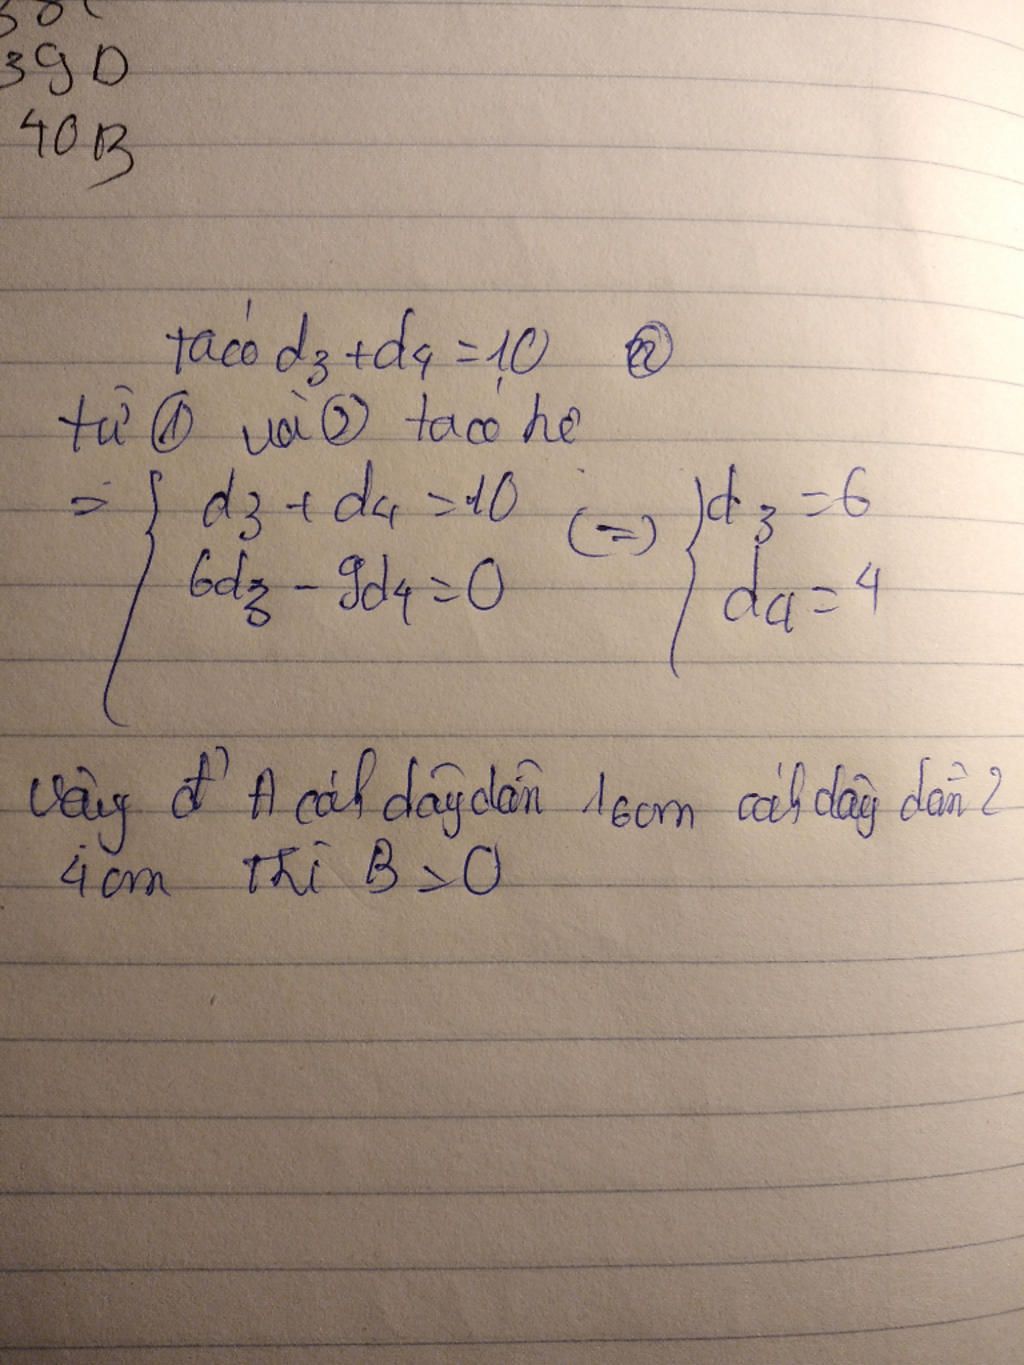 39D
40B
ta có d3 + d4 = 10 ②
từ ① và ② ta có hệ
= { d3 + d4 = 10 (=) { d3 = 6
6d3 - 9d4 = 0 d4 = 4
Vậy đ' A cách dây dẫn 1 6cm cách dây dẫn 2
4cm thì B = 0